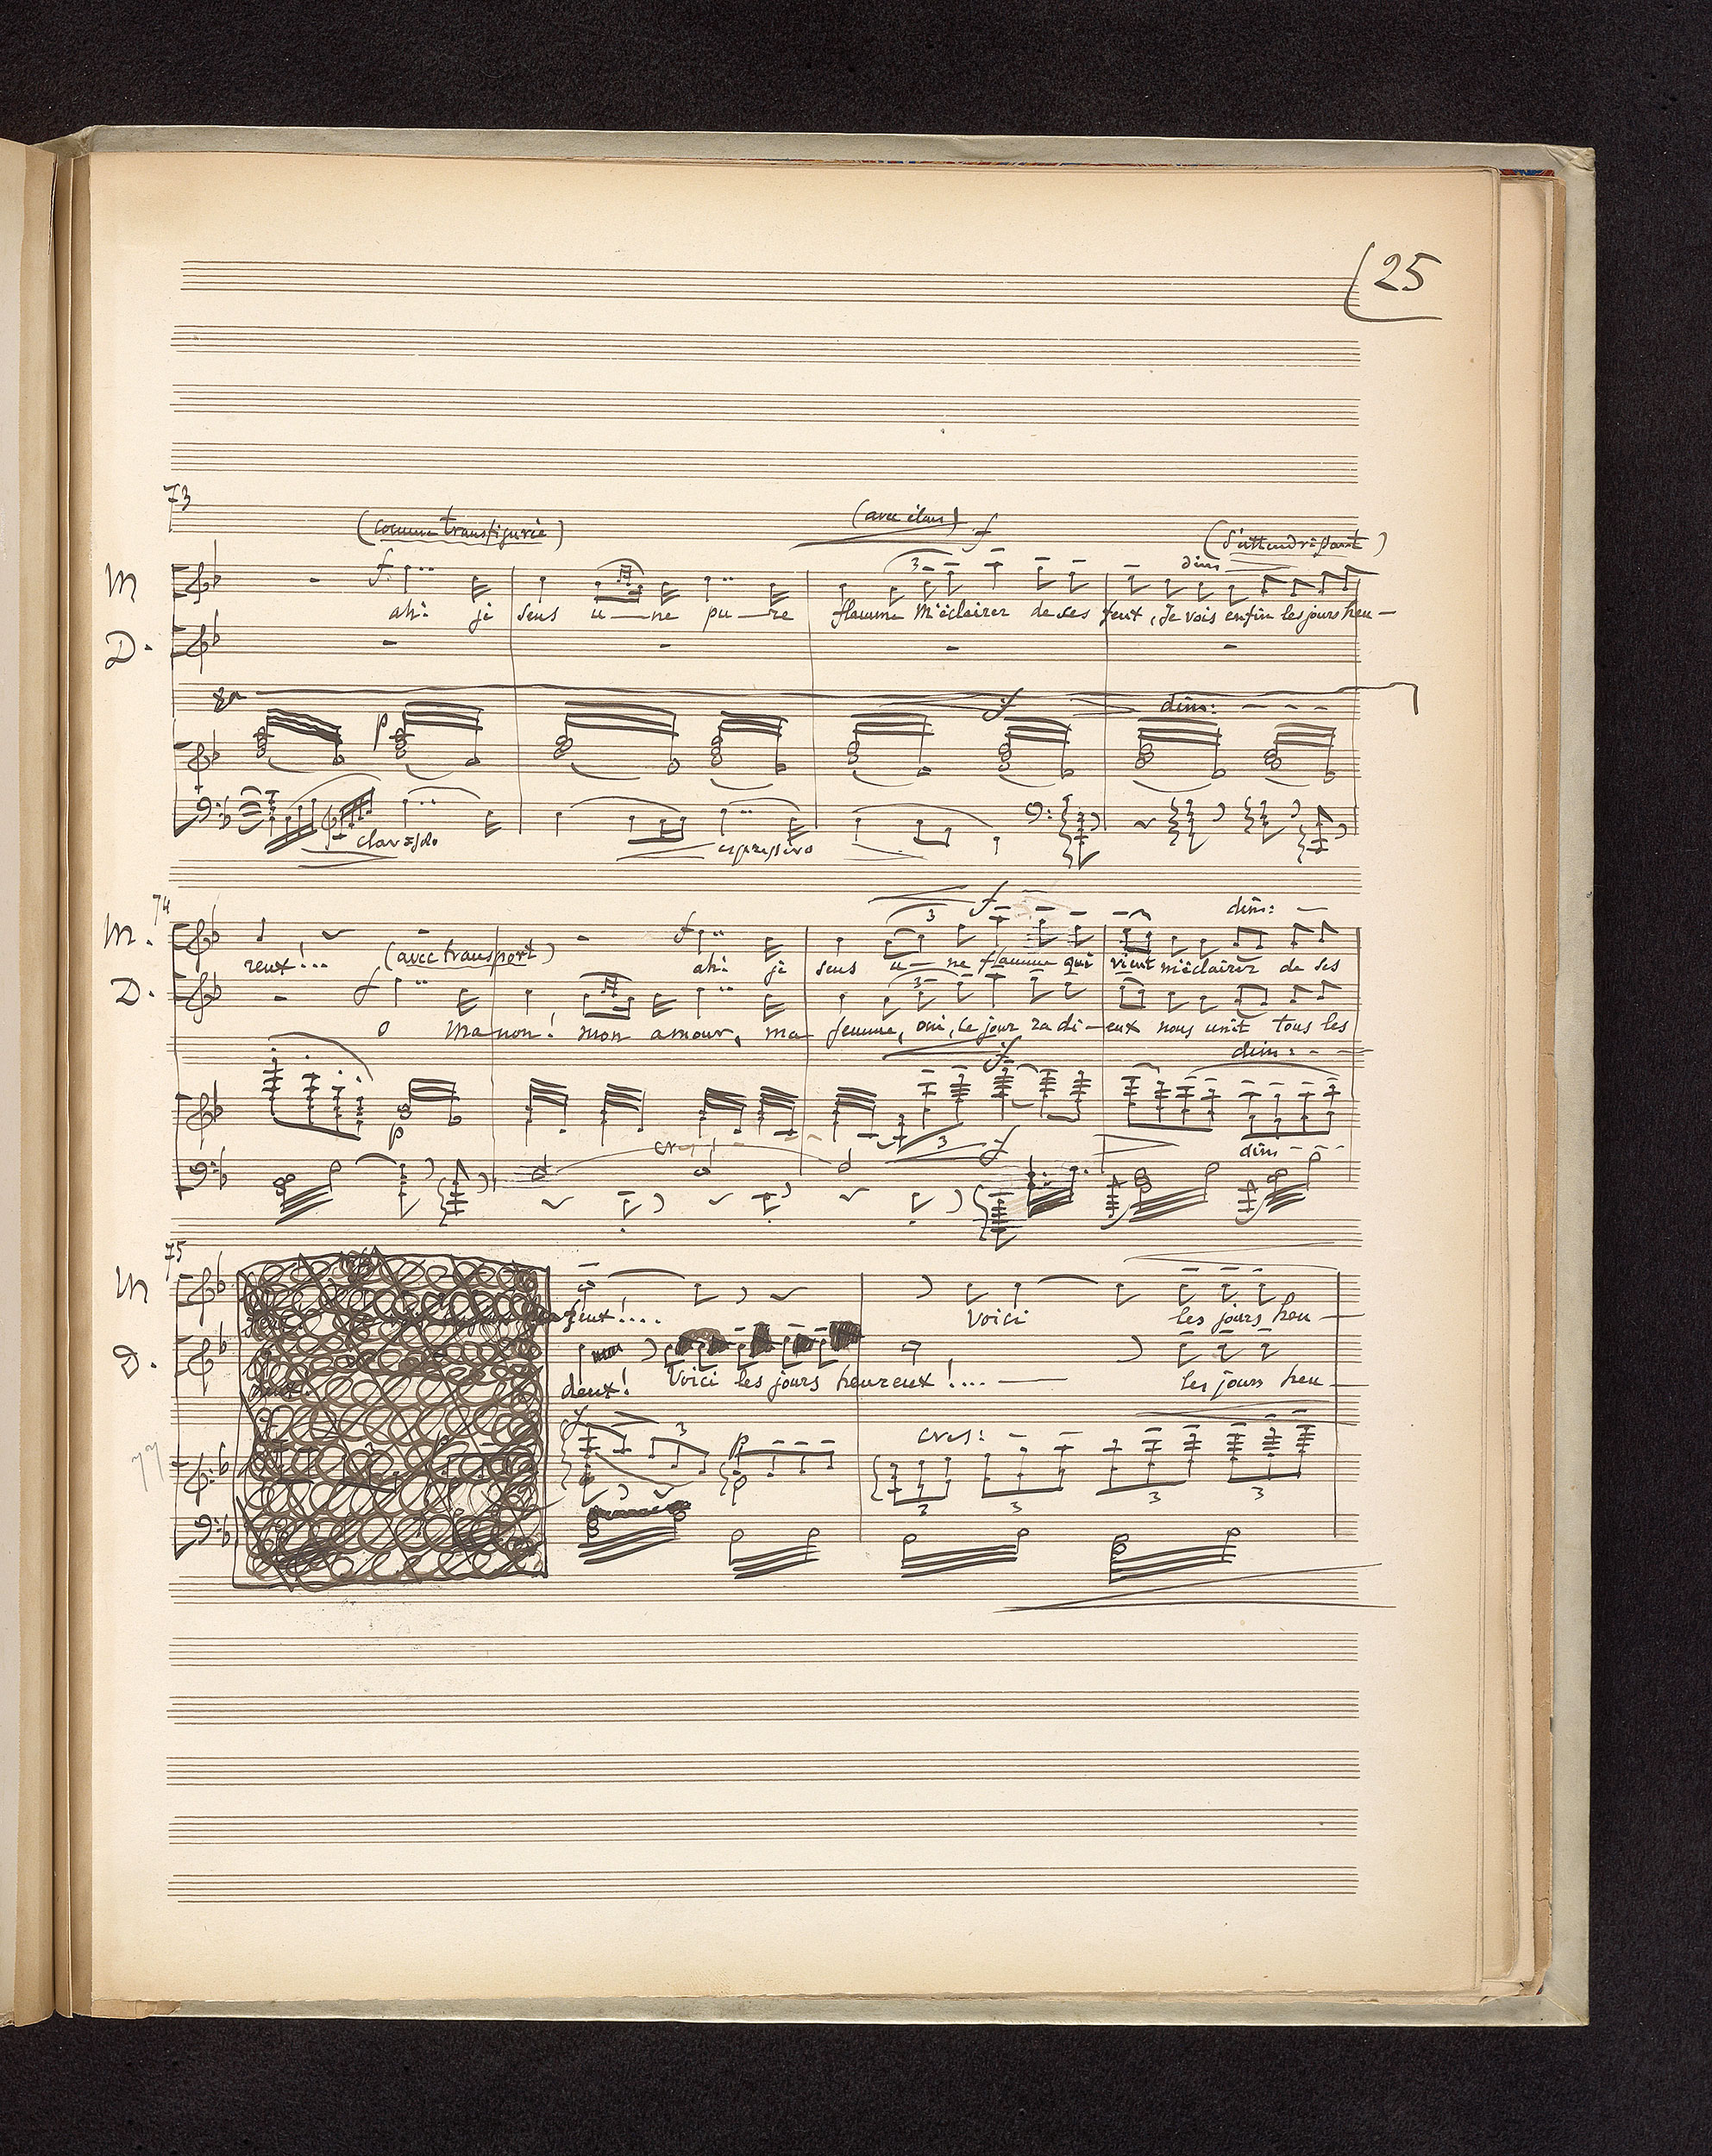 25
73
(comme transfigurée) (avec élan) f (s'attendrissant)
M f 3 dim
ah! je sens u—ne pu—re flamme M'éclairer de ses feux, Je vois enfin les jours heu—
D.
8a f dim:
p
f clar: solo espressivo
74
M. f 3 f dim:
reux!... (avec transport) ah! je sens u—ne flamme qui vient m'éclairer de ses
D. f 3
O Manon! mon amour, ma femme, oui, ce jour radi—eux nous unit tous les
f dim:
p cres 3 f dim
75
M
feux!.... Voici les jours heu—
D.
deux! Voici les jours heureux!... — les jours heu—
f 3 p cres:
77
3 3 3 3